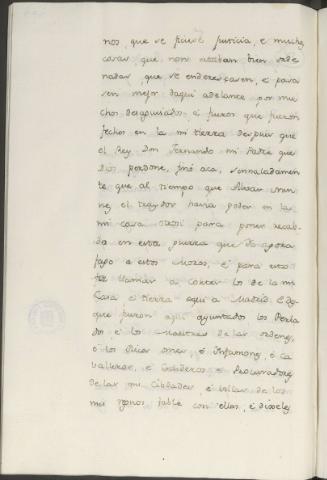 nos, que se ficiese justicia, e muchas
cosas, que non estaban bien orde
nadas, que se enderezasen, e pasa
sen mejor daqui adelante, por mu
chos desaguisados, e fueros que fueron
fechos en la mi tierra despues que
el Rey Don Fernando mi Padre que
Dios perdone, finó acá, sennaladamen
te que al tiempo que Alvar Nun
nez el traydor havia poder en la
mi casa otrosi para poner recab
do en esta guerra que yo agora
fago a estos Moros, e para esto
fiz llamar a cortes los de la mi
Casa e tierra aqui a Madrid. E des
que fueron aqui ayuntados los Perla
dos e los Maestres de las ordenes,
e los Ricos omes, e Infanzones, e ca
valleros, e Escuderos e Procuradores
de las mis Cibdades, e villas de los
mis regnos fable con ellos, e dixeles